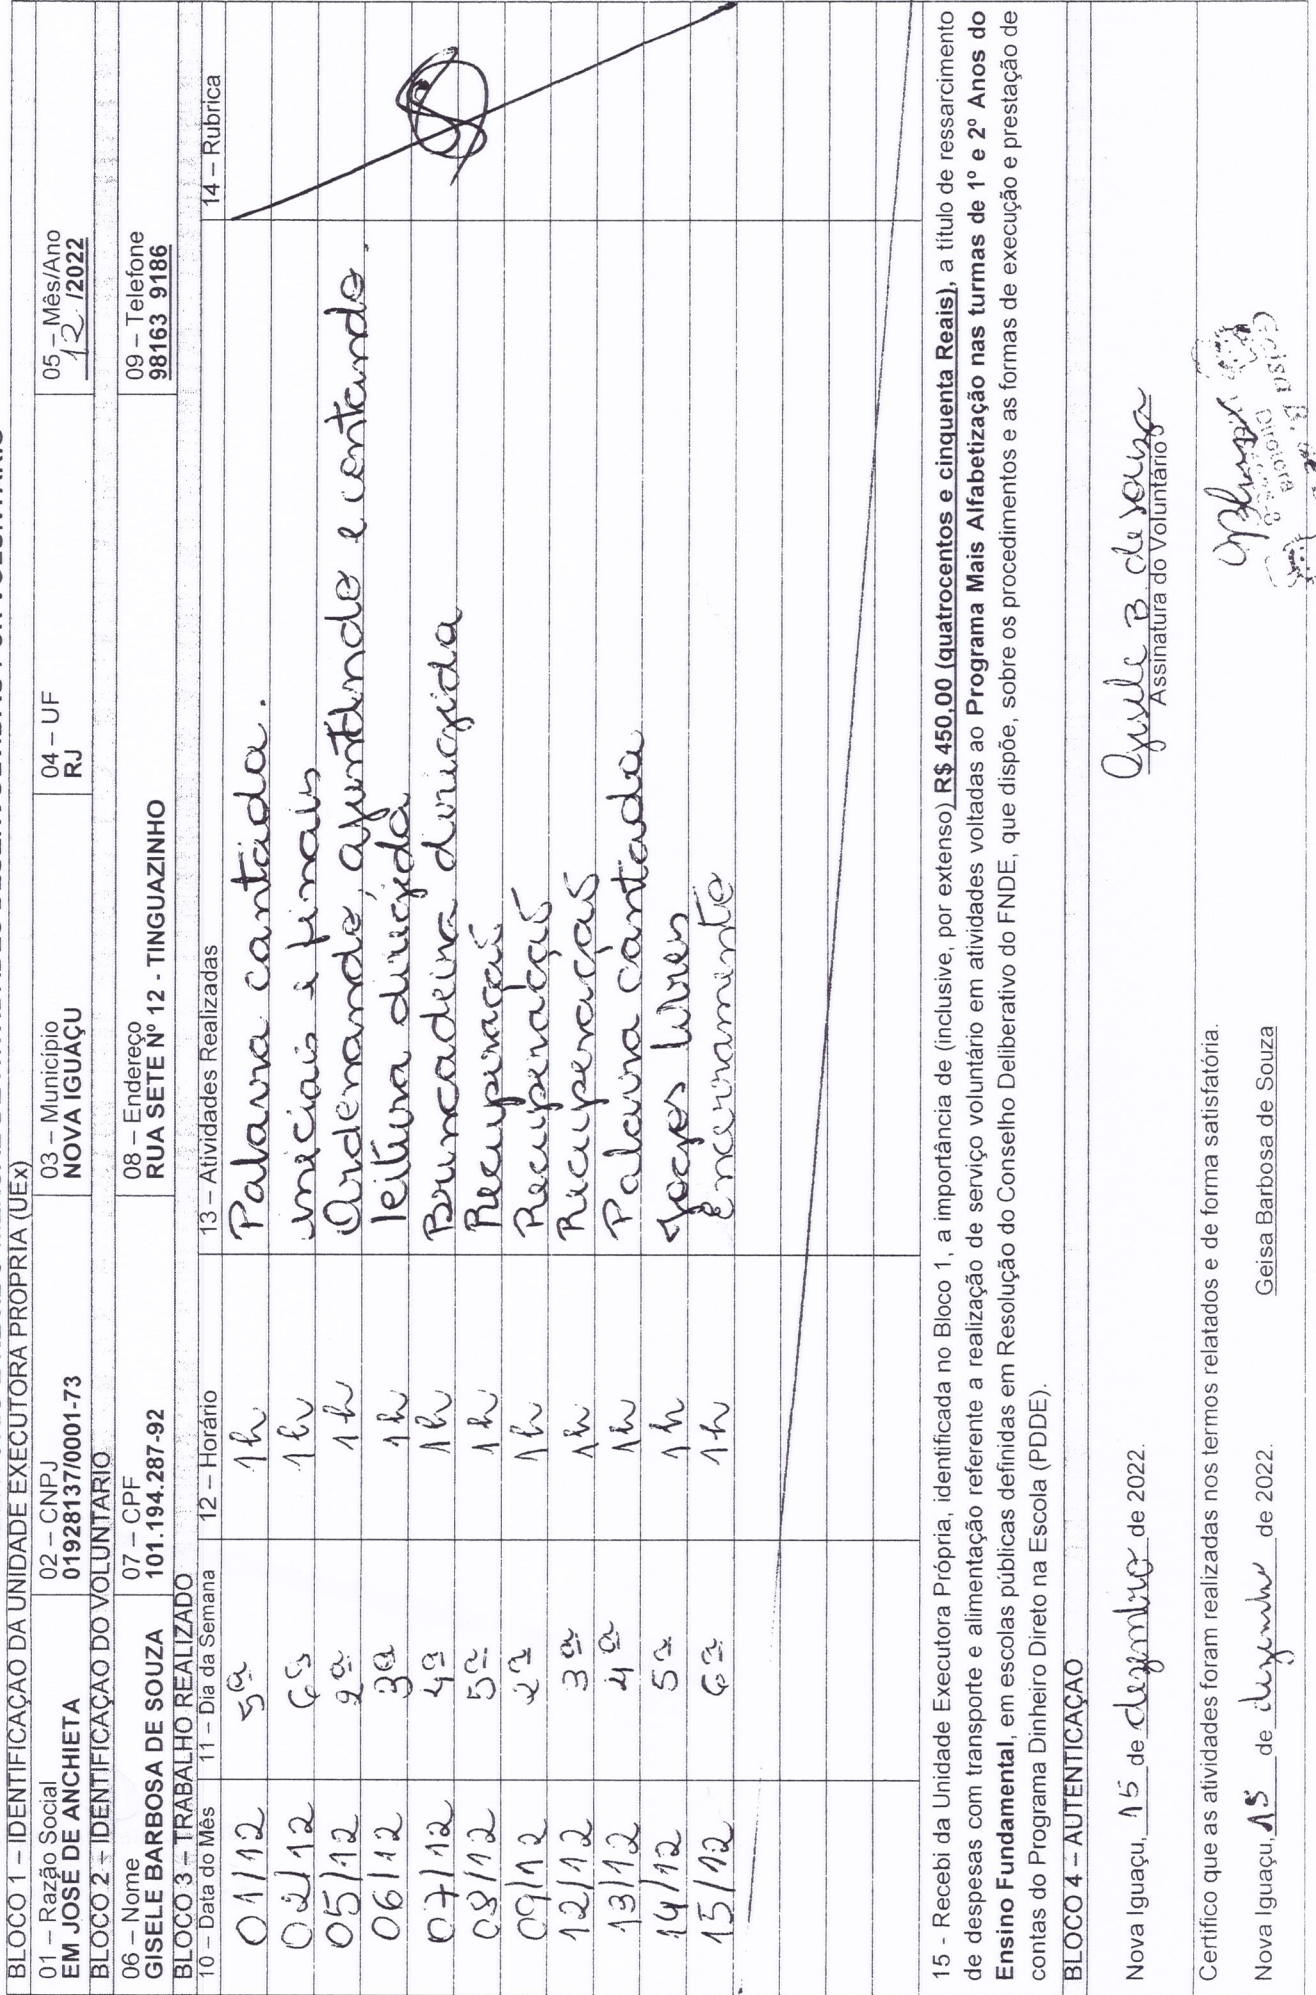 BLOCO 1 – IDENTIFICAÇÃO DA UNIDADE EXECUTORA PRÓPRIA (UEx)
01 – Razão Social 02 – CNPJ 03 – Município 04 – UF 05 – Mês/Ano
EM JOSÉ DE ANCHIETA 01928137/0001-73 NOVA IGUAÇU RJ 12 /2022
BLOCO 2 – IDENTIFICAÇÃO DO VOLUNTÁRIO
06 – Nome 07 – CPF 08 – Endereço 09 – Telefone
GISELE BARBOSA DE SOUZA 101.194.287-92 RUA SETE Nº 12 - TINGUAZINHO 98163 9186
BLOCO 3 – TRABALHO REALIZADO
10 – Data do Mês 11 – Dia da Semana 12 – Horário 13 – Atividades Realizadas 14 – Rubrica
01/12 5ª 1h Palavra cantada.
02/12 6ª 1h iniciais e finais
05/12 2ª 1h Ordenando, ajuntando e contando.
06/12 3ª 1h leitura dirigida
07/12 4ª 1h Brincadeira dirigida
08/12 5ª 1h Recuperação
09/12 2ª 1h Recuperação
12/12 3ª 1h Recuperação
13/12 4ª 1h Palavra cantada
14/12 5ª 1h Jogos livres
15/12 6ª 1h Encerramento
15 - Recebi da Unidade Executora Própria, identificada no Bloco 1, a importância de (inclusive, por extenso) R$ 450,00 (quatrocentos e cinquenta Reais), a título de ressarcimento
de despesas com transporte e alimentação referente a realização de serviço voluntário em atividades voltadas ao Programa Mais Alfabetização nas turmas de 1º e 2º Anos do
Ensino Fundamental, em escolas públicas definidas em Resolução do Conselho Deliberativo do FNDE, que dispõe, sobre os procedimentos e as formas de execução e prestação de
contas do Programa Dinheiro Direto na Escola (PDDE).
BLOCO 4 – AUTENTICAÇÃO
Nova Iguaçu, 15 de dezembro de 2022. Gisele B de Souza
Assinatura do Voluntário
Certifico que as atividades foram realizadas nos termos relatados e de forma satisfatória.
Nova Iguaçu, 15 de dezembro de 2022. Geisa Barbosa de Souza
Diretora